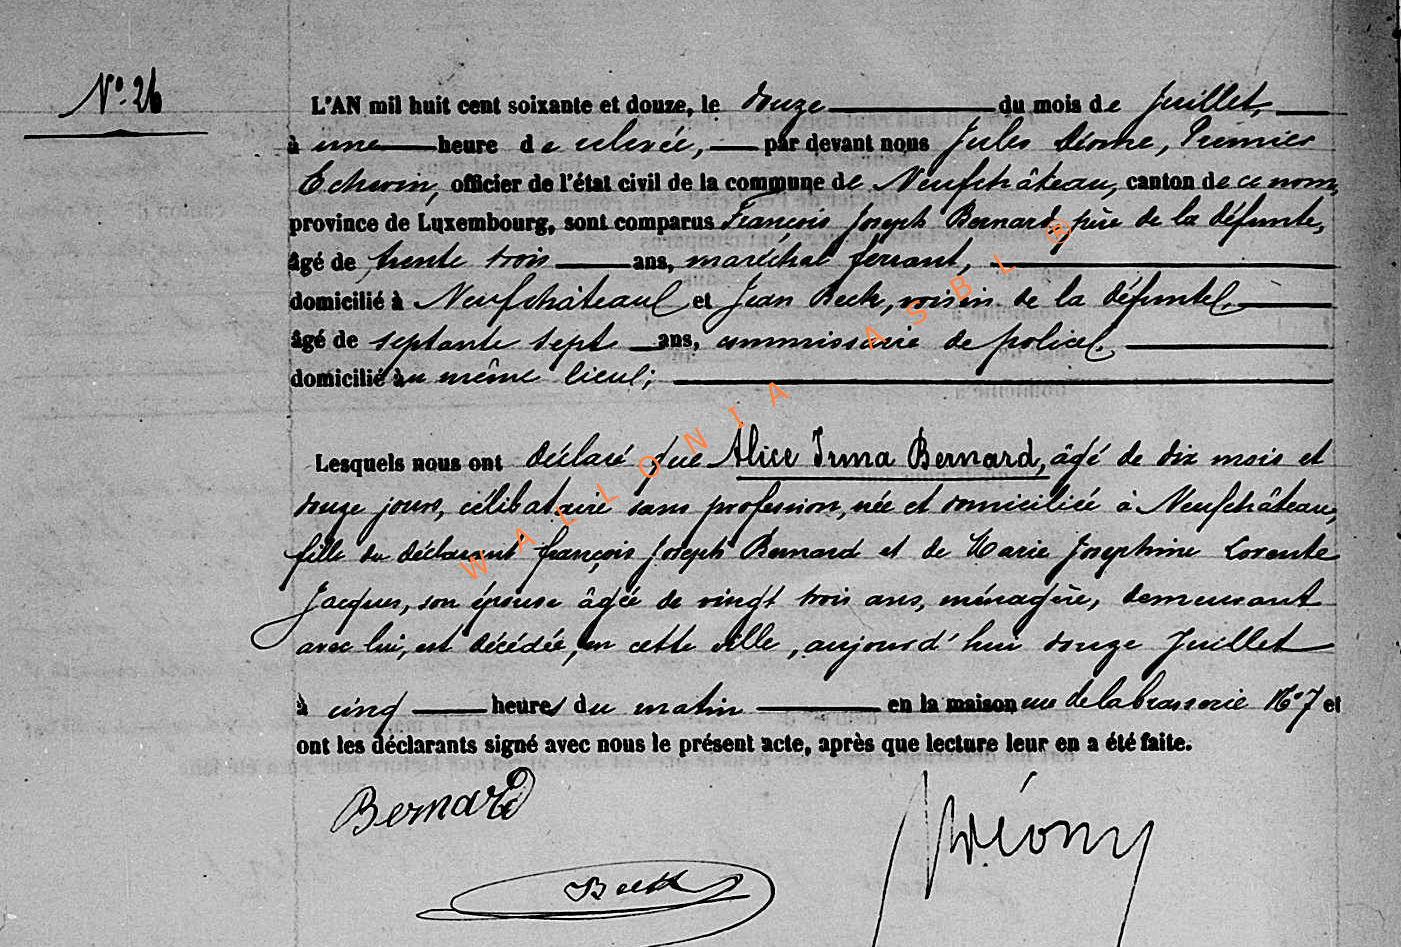 N° 26
L'AN mil huit cent soixante et douze, le douze du mois de Juillet,
à une heure de relevée, par devant nous Jules Diome, Premier
Echevin, officier de l'état civil de la commune de Neufchâteau, canton de ce nom,
province de Luxembourg, sont comparus François Joseph Bernard, père de la défunte,
âgé de trente trois ans, maréchal ferrant,
domicilié à Neufchâteau et Jean Beck, voisin de la défunte,
âgé de septante sept ans, commissaire de police,
domicilié au même lieu;
Lesquels nous ont déclaré que Alice Irma Bernard, âgé de dix mois et
douze jours, célibataire sans profession, née et domiciliée à Neufchâteau,
fille du déclarant françois Joseph Bernard et de Marie Josephine
Jacques, son épouse âgée de vingt trois ans, ménagère, demeurant
avec lui, est décédée, en cette ville, aujourd'hui douze Juillet
à cinq heures du matin en la maison rue de la brasserie N° 7 et
ont les déclarants signé avec nous le présent acte, après que lecture leur en a été faite.
Bernard
Beck
WALLONIA ASBL ®